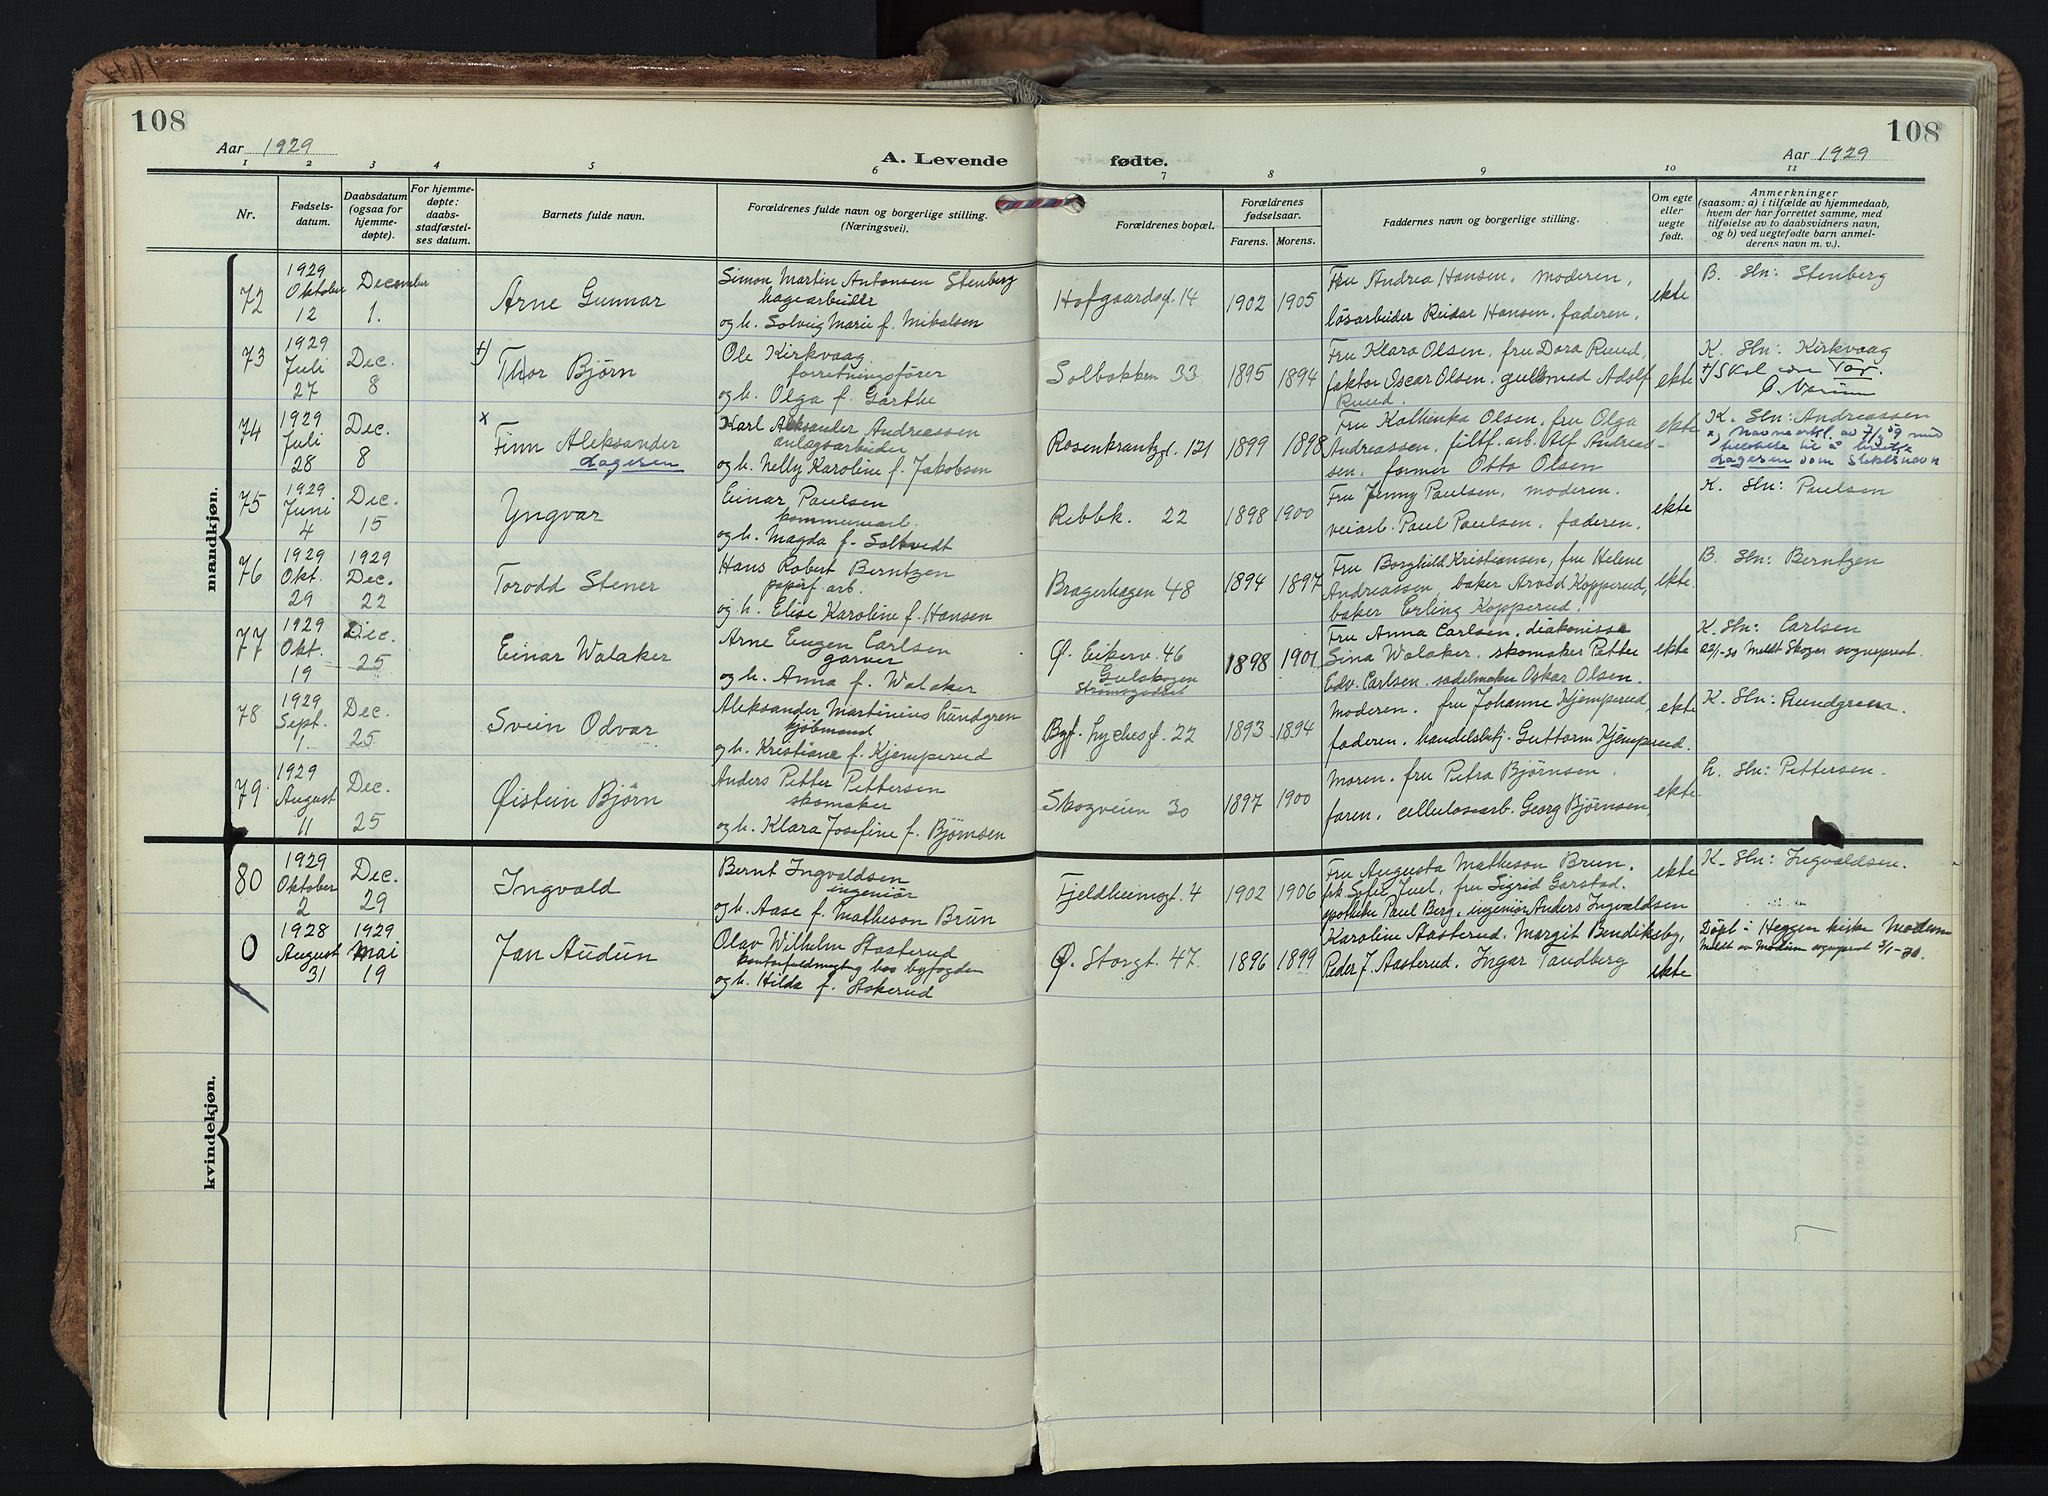 108
108
Aar 1929
A. Levende fødte.
Aar 1929
1 2 3 4 5 6 7 8 9 10 11
Nr.
Fødsels-
datum.
Daabsdatum
(ogsaa for
hjemme-
døpte).
For hjemme-
døpte:
daabs-
stadfæstel-
ses datum.
Barnets fulde navn.
Forældrenes fulde navn og borgerlige stilling.
(Næringsvei).
Forældrenes bopæl.
Forældrenes
fødselsaar.
Farens. Morens.
Faddernes navn og borgerlige stilling.
Om egte
eller
uegte
født.
Anmerkninger
(saasom: a) i tilfælde av hjemmedaab,
hvem der har forrettet samme, med
tilføielse av to daabsvidners navn,
og b) ved uegtefødte barn anmel-
derens navn m. v.).
mandkjøn.
72
1929
Oktober
12
December
1.
Arne Gunnar
Simon Martin Antonsen Stenberg
hagearbeider
og h. Solveig Marie f. Mikalsen
Hofgaardsg. 14
1902 1905
Fru Andrea Hansen, moderen,
løsarbeider Reidar Hansen, faderen.
ekte
B. Hln: Stenberg
73
1929
Juli
27
Dec.
8
+)
Thor Bjørn
Ole Kirkvaag
forretningsfører
og h. Olga f. Garthe
Solbakken 33
1895 1894
Fru Klara Olsen, fru Dora Ruud,
faktor Oscar Olsen, gullsmed Adolf
Ruud.
ekte
K. Hln: Kirkvaag
+) Skal være Tor.
74
1929
Juli
28
Dec.
8
x
Finn Aleksander
Lagesen
Karl Aleksander Andreassen
anlægsarbeider
og h. Nelly Karoline f. Jakobsen
Rosenkrantzg. 121
1899 1898
Fru Kathinka Olsen, fru Olga
Andreassen, filtf. arb. Alf Andreas-
sen, former Otto Olsen
ekte
K. Hln: Andreassen
Lagesen som slektsnavn
75
1929
Juni
4
Dec.
15
Yngvar
Einar Paulsen
kommunearb.
og h. Magda f. Soltvedt
Rebbk. 22
1898 1900
Fru Jenny Paulsen, moderen.
veiarb. Paul Paulsen, faderen.
ekte
K. Hln: Paulsen
76
1929
Okt.
29
1929
Dec.
22
Torodd Stener
Hans Robert Berntzen
papirf. arb.
og h. Elise Karoline f. Hansen
Bragerhagen 48
1894 1897
Fru Borghild Kristiansen, fru Helene
Andreassen, baker Arvid Kopperud,
baker Erling Kopperud.
ekte
B. Hln: Berntzen
77
1929
Okt.
19
Dec.
25
Einar Walaker
Arne Eugen Carlsen
garver
og h. Anna f. Walaker
Ø. Eikerv. 46
Gulskogen
Strømsgodset
1898 1901
Fru Anna Carlsen, diakonisse
Sina Walaker, skomaker Petter
Edv. Carlsen, sadelmaker Oskar Olsen.
ekte
K. Hln: Carlsen
22/1-30 Meldt Skoger sogneprest.
78
1929
Sept.
1.
Dec.
25
Svein Odvar
Aleksander Martinius Lundgren
kjøbmand
og h. Kristiane f. Kjemperud
Bgf. Lychesg. 22
1893 1894
Moderen, fru Johanne Kjemperud
faderen, handelsbetj. Guttorm Kjemperud.
ekte
K. Hln: Lundgreen.
79
1929
August
11
Dec.
25
Øistein Bjørn
Anders Petter Pettersen
skomaker
og h. Klara Josefine f. Bjørnsen
Skogveien 30
1897 1900
Moren, fru Petra Bjørnsen.
faren, cellulosearb. Georg Bjørnsen
ekte
L. Hln: Pettersen.
80
1929
Oktober
2
Dec.
29
Ingvald
Bernt Ingvaldsen
ingeniør
og h. Aase f. Matheson Brun
Fjeldheimsgt. 4
1902 1906
Fru Augusta Matheson Brun.
frk Sofie Juel, fru Sigrid Garstad.
apotheker Paul Berg, ingeniør Anders Ingvaldsen
ekte
K. Hln: Ingvaldsen.
0
1928
August
31
1929
Mai
19
Jan Audun
Olav Wilhelm Aasterud
kontorfuldmægtig hos byfogden
og h. Hilda f. Askerud
Ø. Storgt. 47.
1896 1899
Karoline Aasterud, Margit Bendiksby,
Peder J. Aasterud, Ingar Tandberg
ekte
Døpt i Heggen kirke Modum
Meldt av Modum sogneprest 3/1-30.
kvindekjøn.